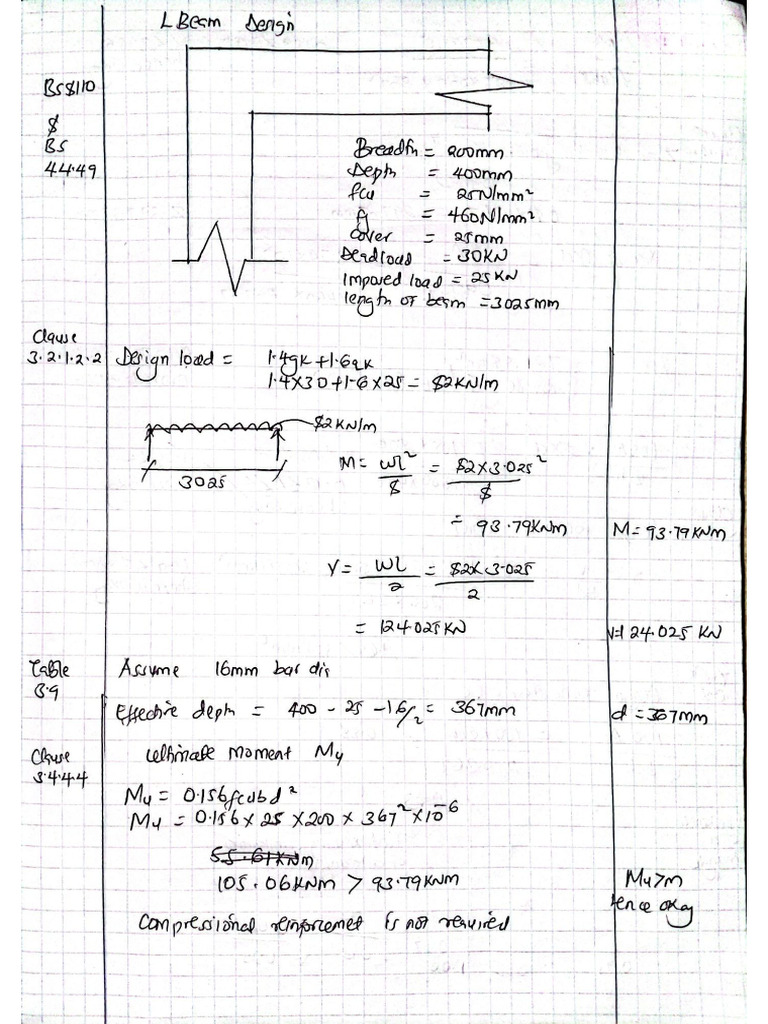 L Beam Design
BS8110
&
BS
4449
Breadth = 200mm
Depth = 400mm
fcu = 25N/mm²
fy = 460N/mm²
cover = 25mm
Deadload = 30KN
Imposed load = 25KN
length of beam = 3025mm
Clause
3.2.1.2.2
Design load = 1.4gk+1.6qk
1.4×30+1.6×25 = 82KN/m
82KN/m
3025
M = wl²/8 = 82×3.025²/8
= 93.79KNm
M = 93.79KNm
V = wl/2 = 82×3.025/2
= 124.025KN
V=124.025 KN
Table
3.9
Assume 16mm bar dia
Effective depth = 400 - 25 - 16/2 = 367mm
d = 367mm
Clause
3.4.4.4
ultimate moment Mu
Mu = 0.156fcubd²
Mu = 0.156 × 25 × 200 × 367² × 10⁻⁶
55.61KNm
105.06KNm > 93.79KNm
Mu>m
hence okay
Compressional reinforcemet is not required